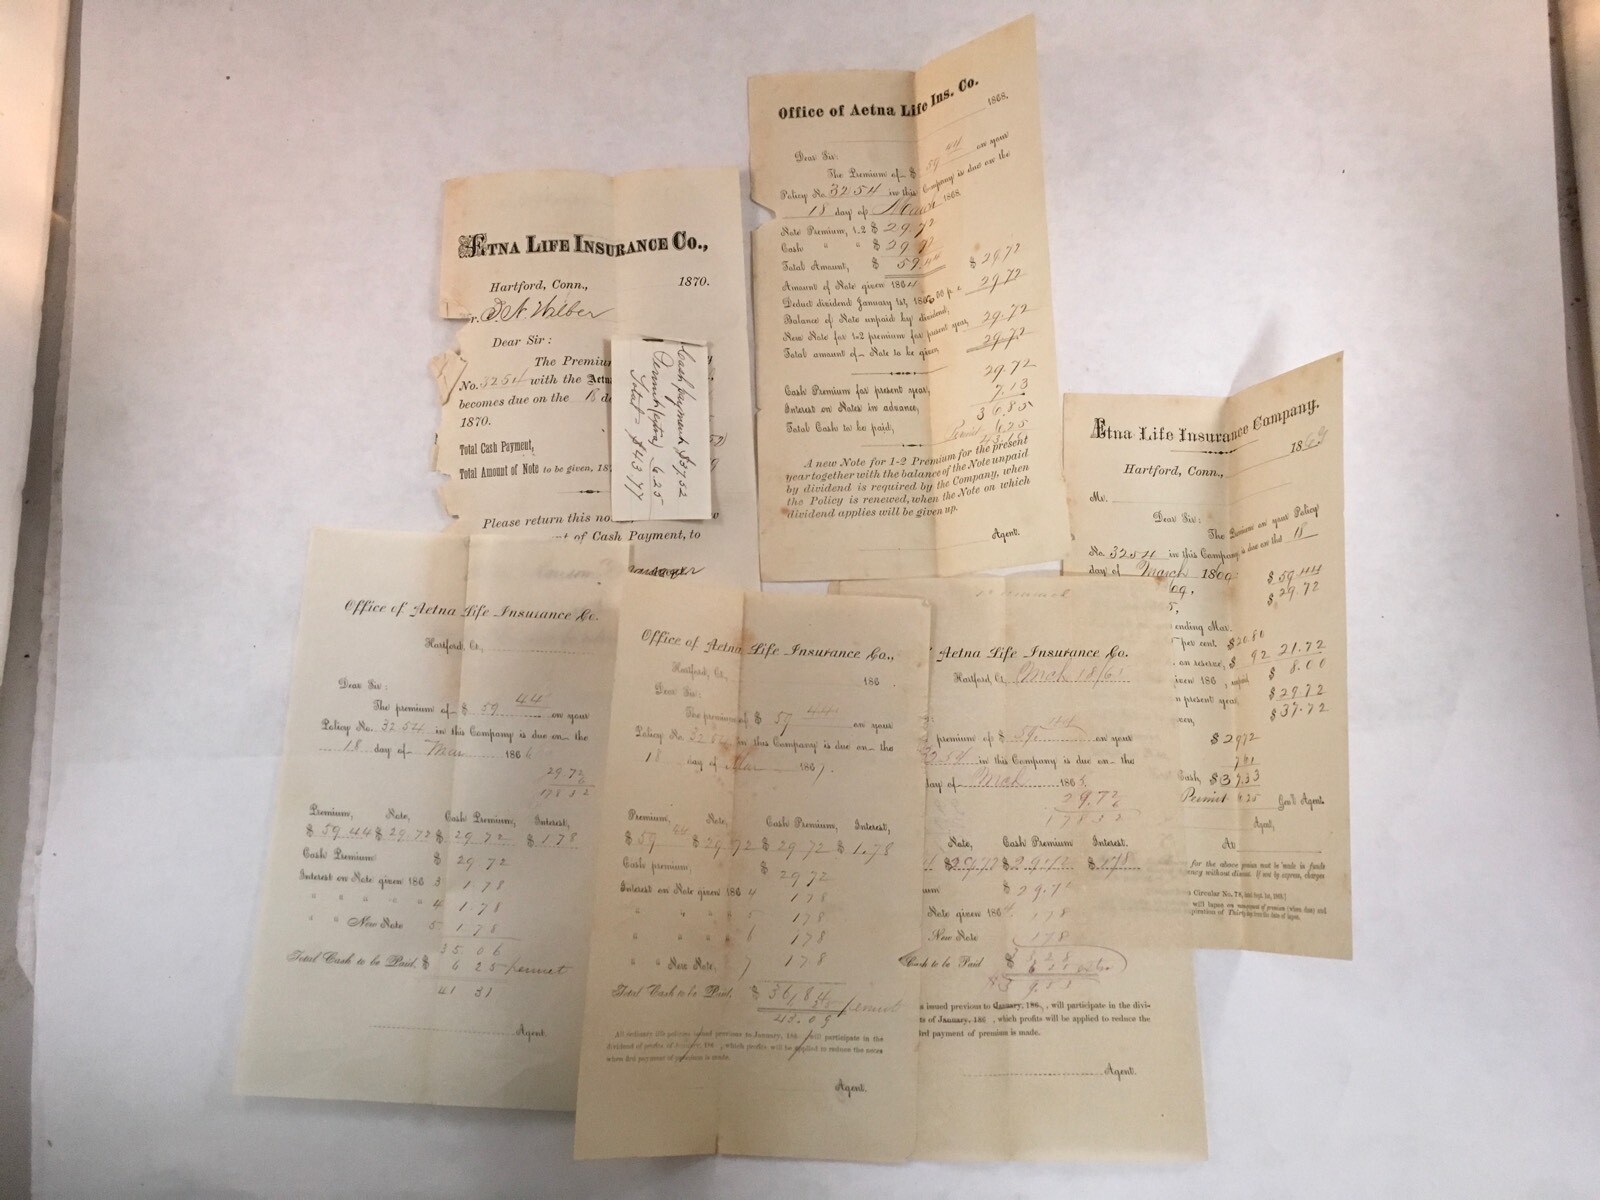 ÆTNA LIFE INSURANCE CO.,
Hartford, Conn., 1870.
Wilber
Dear Sir:
The Premiu
No. 3254 with the Ætna
becomes due on the 18 da
1870.
Total Cash Payment,
Total Amount of Note to be given, 187
Please return this no
of Cash Payment, to
Cash payment $37 52
Permit (extra) 6.25
Total $43.77
Office of Aetna Life Ins. Co.
1868.
Dear Sir:
The Premium of $ 59 44 on your
Policy No. 3254 in this Company is due on the
18 day of March 1868.
Note Premium, 1-2 $ 29 72
Cash " " $ 29 72
Total Amount, $ 59.44 $ 29.72
Amount of Note given 186
Deduct dividend January 1st, 186 p c 29.72
Balance of Note unpaid by dividend,
New Note for 1-2 premium for present year, 29.72
Total amount of Note to be given 29.72
29.72
Cash Premium for present year,
Interest on Notes in advance, 7.13
Total Cash to be paid, 36.85
A new Note for 1-2 Premium for the present
year together with the balance of the Note unpaid
by dividend is required by the Company, when
the Policy is renewed, when the Note on which
dividend applies will be given up.
Agent.
Ætna Life Insurance Company.
Hartford, Conn., 1869
Mr.
Dear Sir:
The Premium on your Policy
No. 3254 in this Company is due on the 18
day of March 1869
$ 59 44
$ 29.72
ending Mar.
per cent. $20.80
on reserve, $ 92 21.72
given 186 $ 8.00
present year $ 29 72
$ 37.72
$ 29 72
Cash, $ 37.33
Permit 6.25 Gen'l Agent.
Agent,
At
Office of Aetna Life Insurance Co.
Hartford, Ct.,
Dear Sir:
The premium of $ 59 44 on your
Policy No. 3254 in this Company is due on the
18 day of Mar 1866
29.72
6
178 32
Premium, Note, Cash Premium, Interest,
$ 59.44 $ 29.72 $ 29 72 $ 1.78
Cash Premium $ 29 72
Interest on Note given 186 3 1 78
" " " " " 4 1.78
" " New Note 5 1 78
35.06
Total Cash to be Paid, $ 6 25 permit
41 31
Agent.
Office of Aetna Life Insurance Co.,
Hartford, Ct., 186 .
Dear Sir:
The premium of $ 59 44 on your
Policy No. 3254 in this Company is due on the
18 day of Mar 1867.
Premium, Note, Cash Premium, Interest,
$ 59 44 $ 29 72 $ 29 72 $ 1.78
Cash premium, $ 29 72
Interest on Note given 186 4 1 78
" " " " 5 1 78
" " " " 6 1 78
" " New Note, 7 1 78
Total Cash to be Paid, $ 36 84 permit
43.09
All ordinary life policies issued previous to January, 186 , will participate in the
dividend of profits of January, 186 , which profits will be applied to reduce the notes
when 3rd payment of premium is made.
Agent.
Aetna Life Insurance Co.
Hartford, Ct.
premium of $ 59 44 on your
3254 in this Company is due on the
day of Mch 1865.
29.72
178 32
Note, Cash Premium, Interest.
$29.72 $29.72 $1.78
um $ 29.72
Note given 186 178
New Note 178
Cash to be Paid
s issued previous to January, 186 , will participate in the divi-
ts of January, 186 , which profits will be applied to reduce the
3rd payment of premium is made.
Agent.